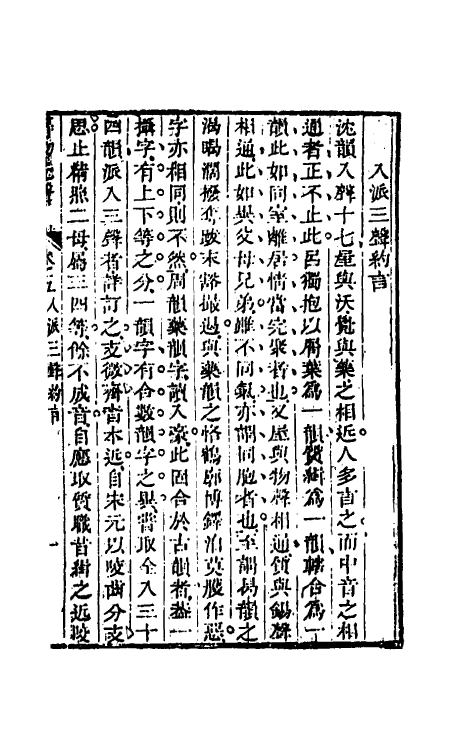 入派三聲約言
沈韻入聲十七屋與沃覺與藥之相近人多言之而中音之相
通者正不止此呂獨抱以屑葉爲一韻質緝爲一韻轄合爲一
韻此如同室離居情當完聚者也又屋與物聲相通質與錫聲
相通此如異父母兄弟雖不同氣亦謂同胞者也至謂曷韻之
渴喝濶撥奪跋末豁撮過與藥韻之恪鶴郭博鐸泊莫膜作惡
字亦相同則不然周韻藥韻字讀入豪此固合於古韻者葢一
攝字有上下等之分一韻字有合數韻字之異嘗取全入三十
四韻派入三聲者詳訂之支微齊音本近自宋元以啖齒分支
思止精照二母屬三四等餘不成音自應取質職昔緝之近啖
卷之五入派三聲約言